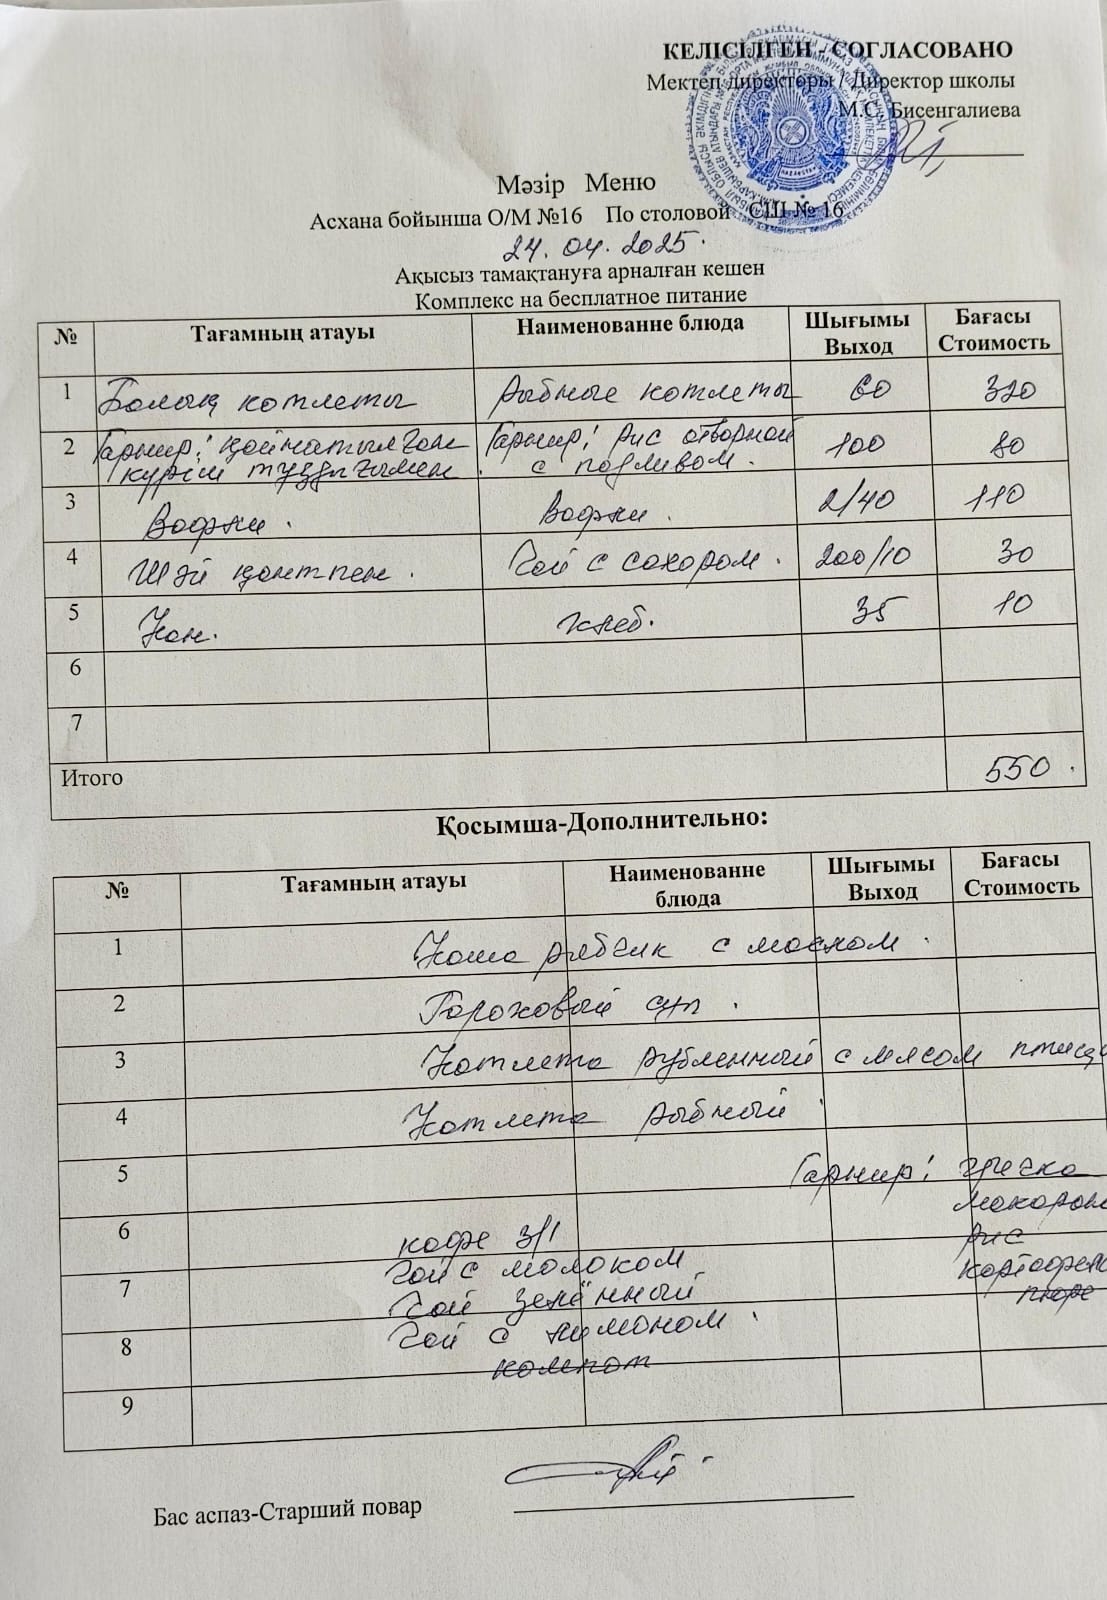 КЕЛІСІЛГЕН - СОГЛАСОВАНО
Мектеп директоры / Директор школы
М.С. Бисенгалиева
Мәзір Меню
Асхана бойынша О/М №16 По столовой СШ № 16
24.04.2025.
Ақысыз тамақтануға арналған кешен
Комплекс на бесплатное питание
№ Тағамның атауы Наименованне блюда Шығымы Выход Бағасы Стоимость
1 Балық котлеты Рыбные котлеты 60 320
2 Гарнир: қайнатылған күріш тұздығымен Гарнир: рис отварной с подливом. 100 80
3 Вафли. Вафли. 2/40 110
4 Шәй қантпен. Чай с сахаром. 200/10 30
5 Нан. Хлеб. 35 10
6
7
Итого 550.
Қосымша-Дополнительно:
№ Тағамның атауы Наименованне блюда Шығымы Выход Бағасы Стоимость
1 Каша с маслом.
2 Гороховый суп.
3 Котлета рубленный с мясом
4 Котлета рыбный
5 Гарнир: гречка
макарон
рис
6 кофе 3/1
чай с молоком
картофель
пюре
7 Чай зелённый
8 Чай с лимоном.
компот
9
Бас аспаз-Старший повар